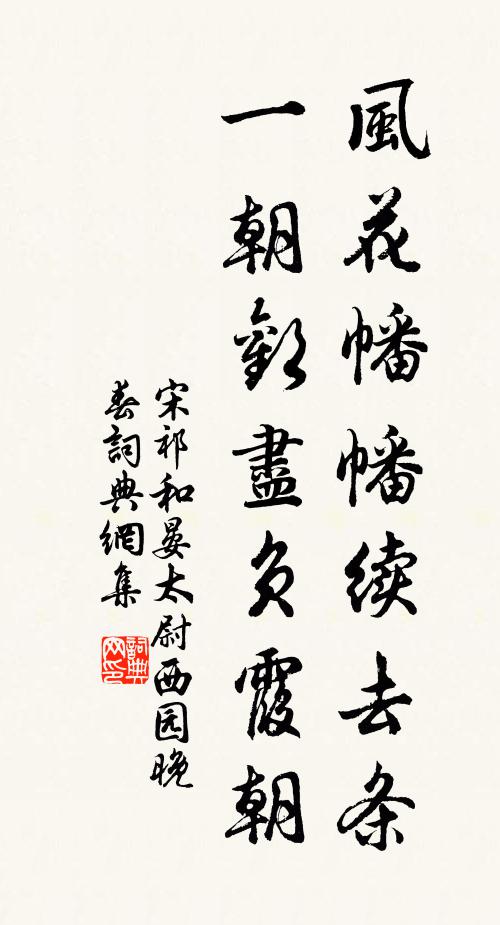 風花幡幡续去条
一朝歡盡負霞朝
宋祁和晏太尉西园晚
春詞典網集
詞典网印